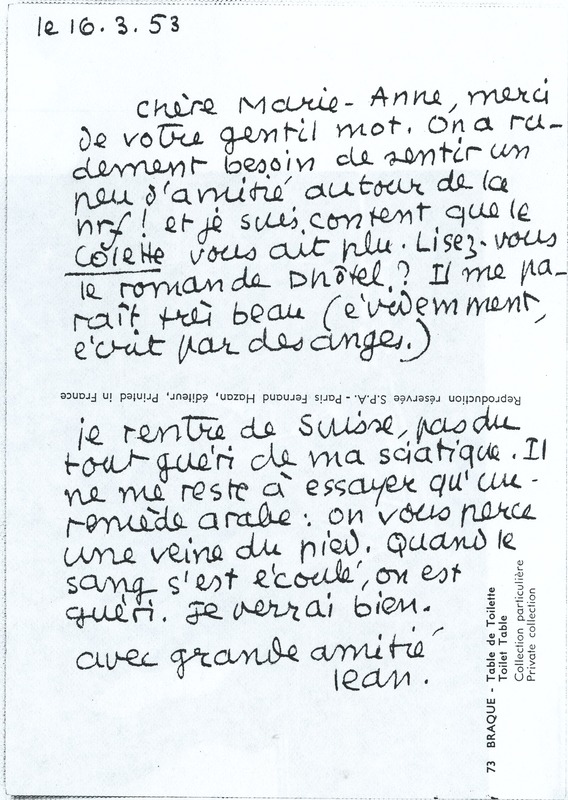 le 16.3.53
chère Marie-Anne, merci
de votre gentil mot. On a ru-
dement besoin de sentir un
peu d'amitié autour de la
nrf! et je suis content que le
Colette vous ait plu. Lisez-vous
le roman de Dhôtel? Il me pa-
raît très beau (évidemment,
écrit par des anges.)
Reproduction réservée S.P.A. - Paris Fernand Hazan, éditeur, Printed in France
je rentre de Suisse, pas du
tout guéri de ma sciatique. Il
ne me reste à essayer qu'un
remède arabe: on vous perce
une veine du pied. Quand le
sang s'est écoulé, on est
guéri. Je verrai bien.
avec grande amitié
Jean.
73 BRAQUE - Table de Toilette
Toilet Table
Collection particulière
Private collection